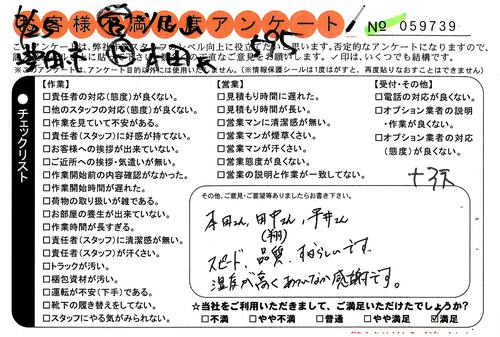 お客様満足度アンケート
№ 059739
※このアンケートは、アンケート目的以外には使用いたしません。(※情報保護シールは1度はがすと、再度貼りなおすことはできません)
● チェックリスト
【作業】
□責任者の対応(態度)が良くない。
□他のスタッフの対応(態度)が良くない。
□作業を見ていて不安がある。
□責任者(スタッフ)に好感が持てない。
□お客様への挨拶が出来ていない。
□ご近所への挨拶・気遣いが無い。
□作業開始前の内容確認がなかった。
□作業開始時間が遅れた。
□荷物の取り扱いが雑である。
□お部屋の養生が出来ていない。
□作業時間が長すぎる。
□責任者(スタッフ)に清潔感が無い。
□責任者(スタッフ)が汗くさい。
□トラックが汚い。
□梱包資材が汚い。
□運転が不安(下手)である。
□靴下の履き替えをしてない。
□スタッフにやる気がみられない。
【営業】
□見積もり時間に遅れた。
□見積もり時間が長い。
□営業マンに清潔感が無い。
□営業マンが煙草くさい。
□営業マンが汗くさい。
□営業態度が良くない。
□営業の説明と作業が一致してない。
【受付・その他】
□電話の対応が良くない。
□オプション業者の説明
・作業が良くない。
□オプション業者の対応
(態度)が良くない。
その他、ご意見・ご要望等ありましたらお書き下さい。
本田さん、田中さん、平井さん
(翔)
スピード、品質、すばらしいです。
温度が高く ありがたく感謝です。
☆当社をご利用いただきまして、ご満足いただけたでしょうか?
□不満 □やや不満 □普通 □やや満足 ☑満足